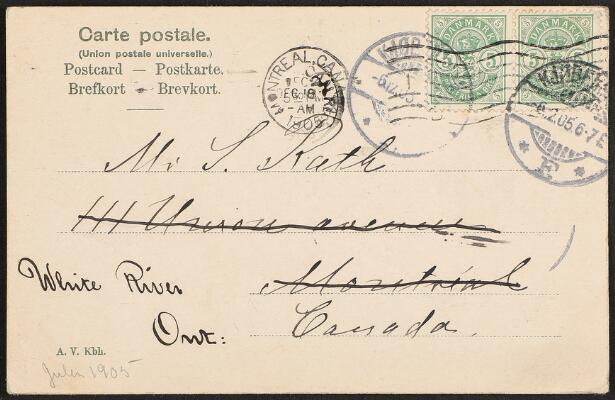 Carte postale.
(Union postale universelle.)
Postcard — Postkarte.
Brefkort — Brevkort.
MONTREAL, CAN.
1905
AM
DANMARK
5 5
DANMARK
5 5
6.12.05
.12.05.6-7E
F
Mr S. Rath
111 Union avenue
White River
Montréal
Ont:
Canada.
A. V. Kbh.
Julen 1905